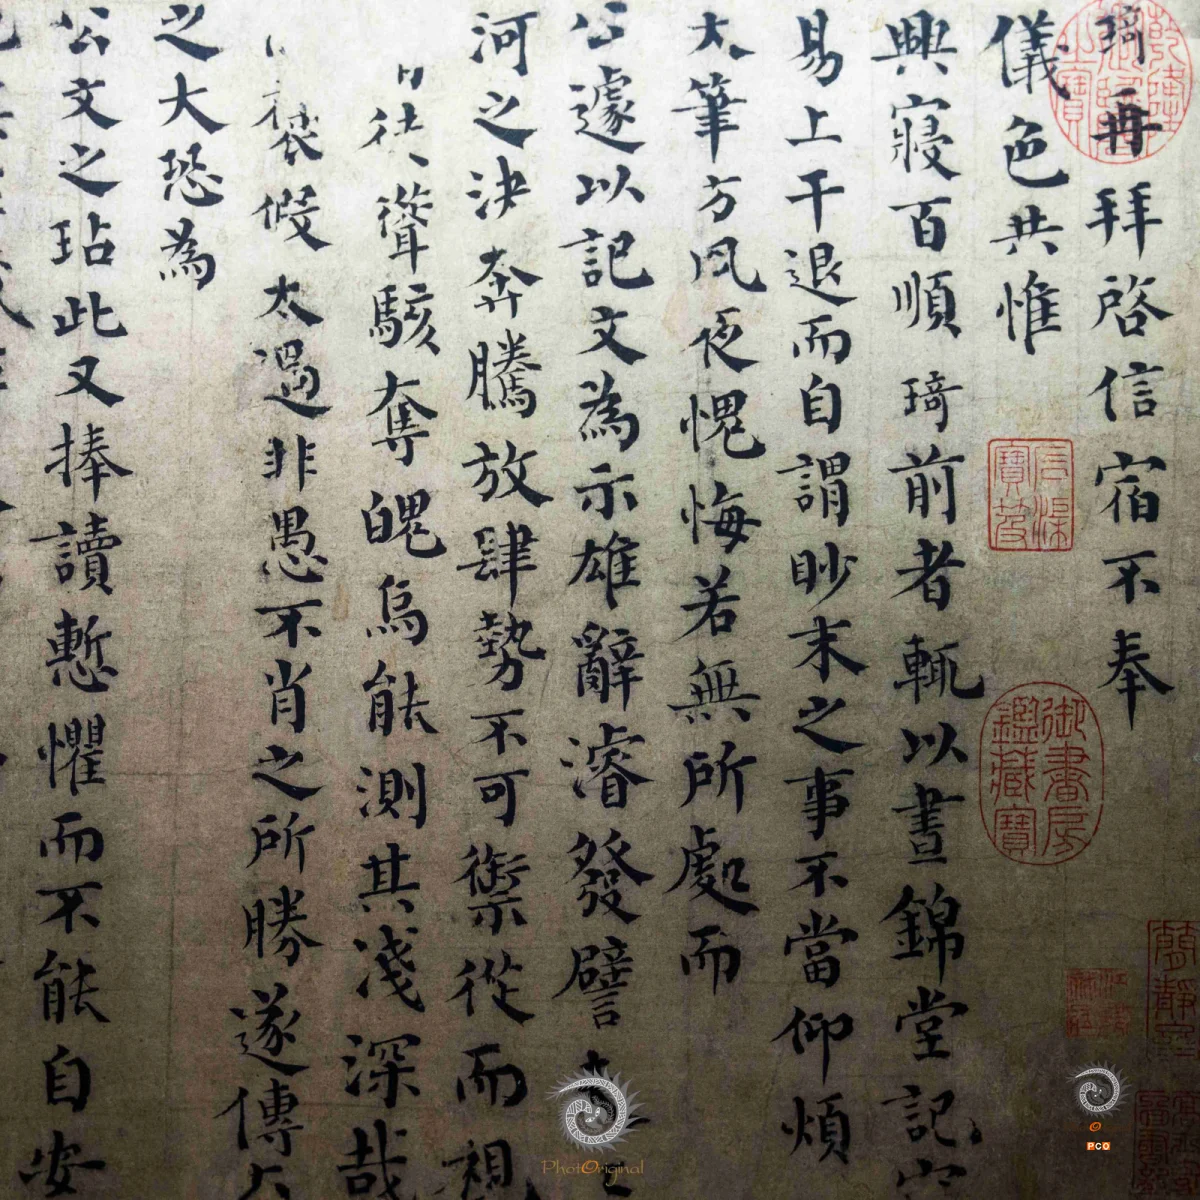 琦再拜啓信宿不奉
儀色共惟
興寢百順琦前者輒以晝錦堂記宜
易上干退而自謂眇末之事不當仰煩
大筆方夙夜愧悔若無所處而
公遽以記文為示雄辭濬發譬
河之決奔騰放肆勢不可禦從而視
徒聳駭奪魄烏能測其淺深哉
褒假太過非愚不肖之所勝遂傳
之大恐為
公文之玷此又捧讀慙懼而不能自安
御書房鑑藏寶
PhotOriginal
PCO